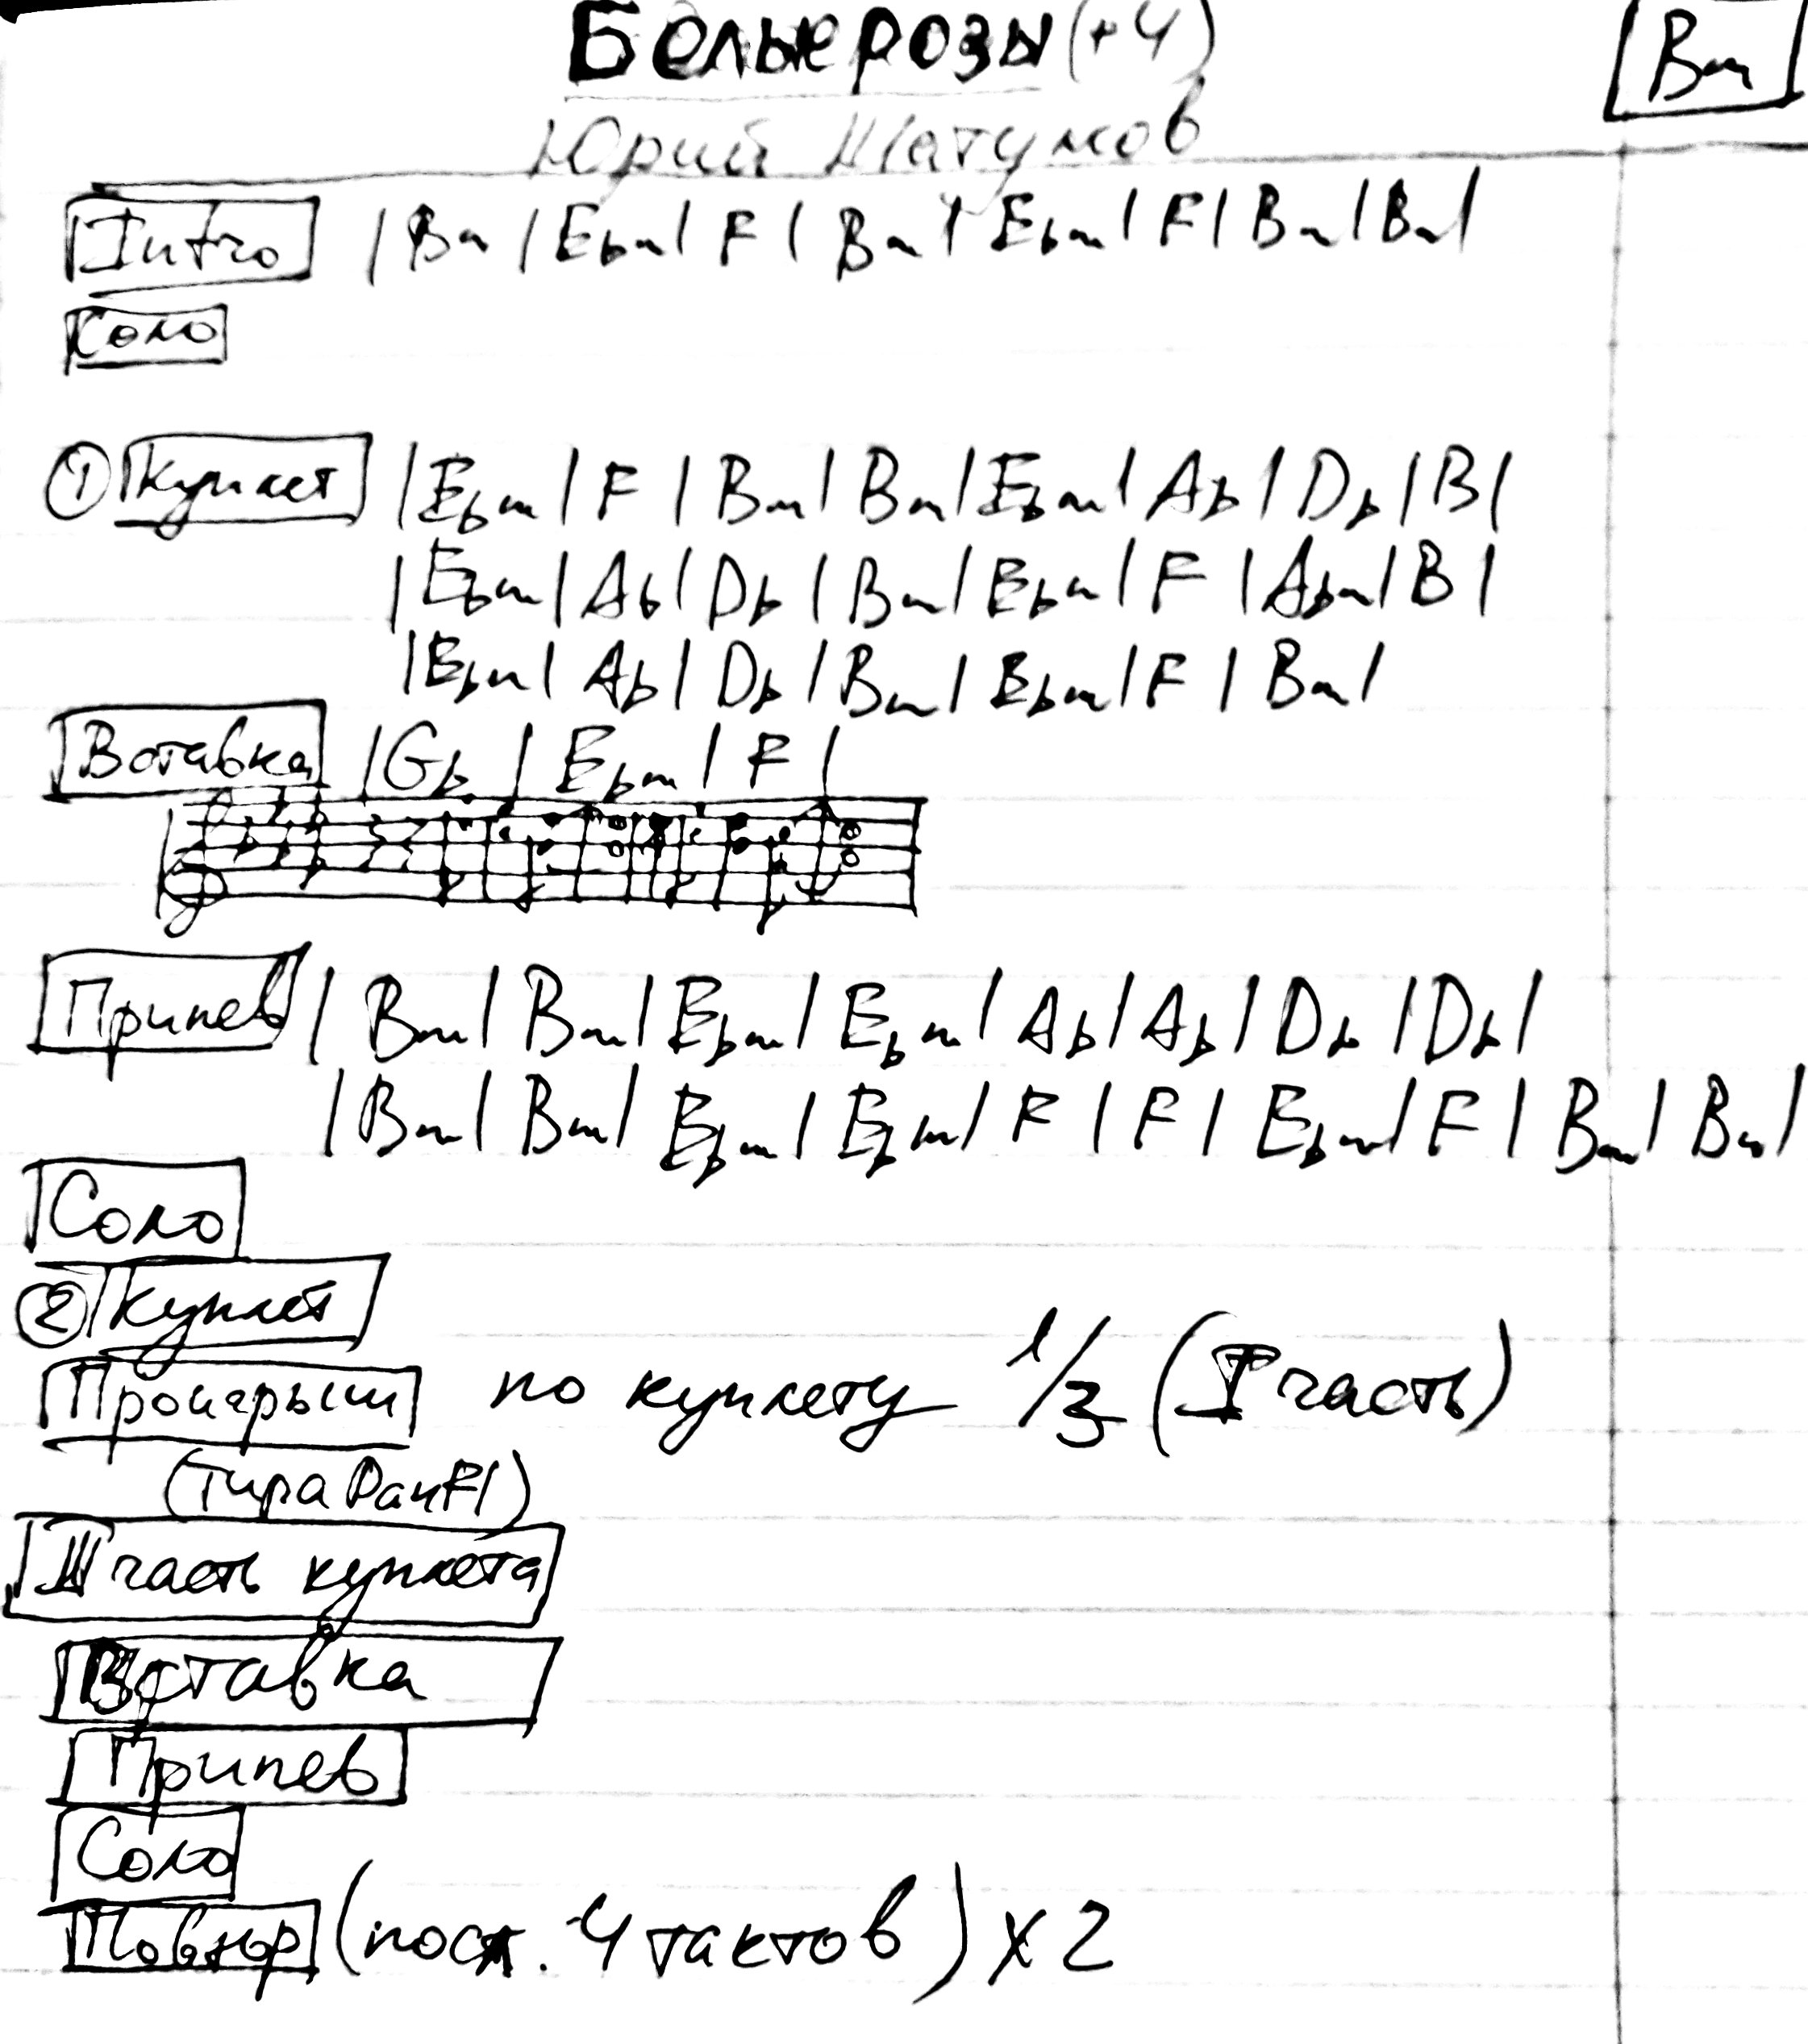 Белые розы (+4)
Bm
Юрий Шатунов
Intro | Bm | Ebm | F | Bm | Ebm | F | Bm | Bm |
Соло
① Куплет | Ebm | F | Bm | Bm | Ebm | Ab | Db | B |
| Ebm | Ab | Db | Bm | Ebm | F | Abm | B |
| Ebm | Ab | Db | Bm | Ebm | F | Bm |
Вставка | Gb | Ebm | F |
Припев | Bm | Bm | Ebm | Ebm | Ab | Ab | Db | Db |
| Bm | Bm | Ebm | Ebm | F | F | Ebm | F | Bm | Bm |
Соло
② Куплет
Проигрыш по куплету 1/3 (I часть)
(типа PanFl)
часть куплета
Вставка
Припев
Соло
(посл. 4 тактов) x 2